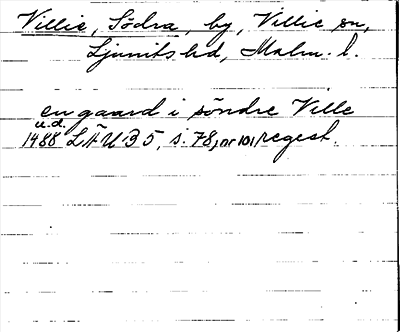 Villie, Södra, by, Villie sn,
Ljunits hd, Malm. l.
en gaard i söndre Ville
u.d.
1488 LÄUB 5, s. 78, nr 101, regest.